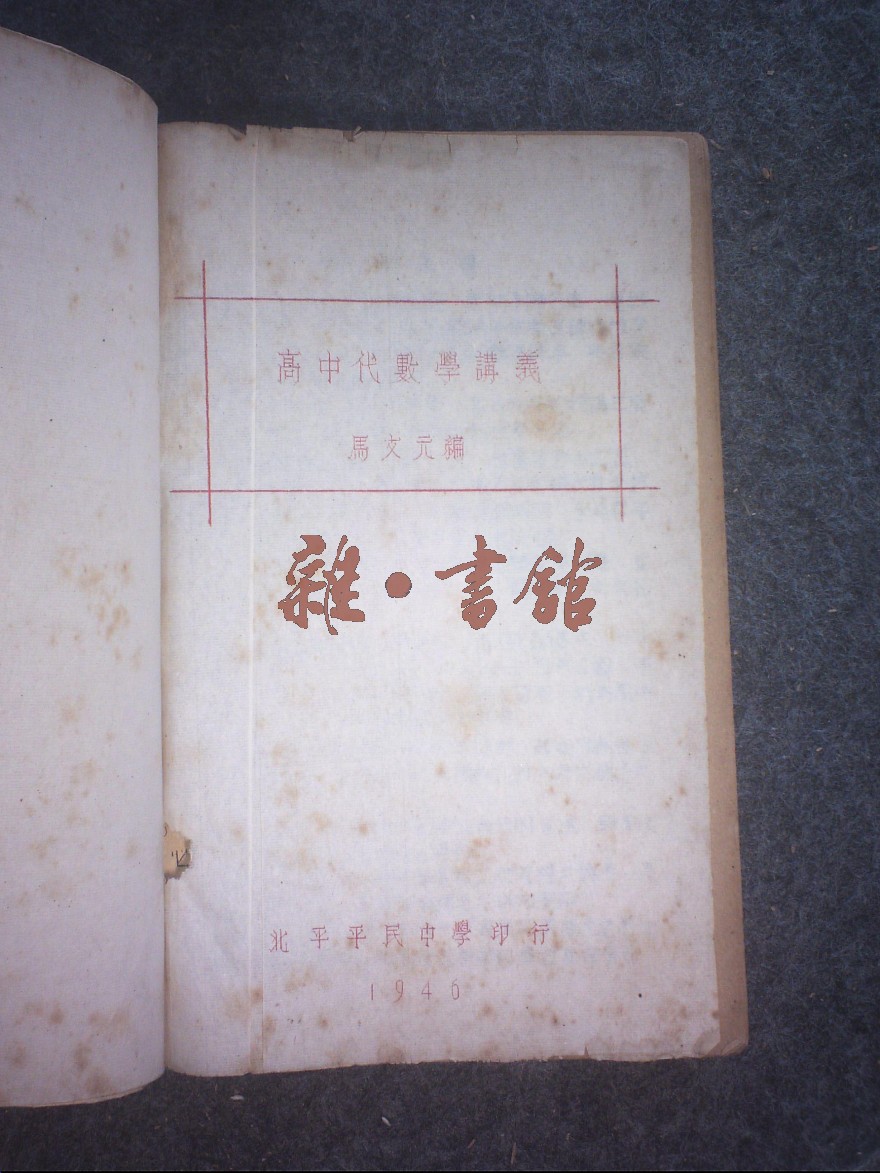 高中代數學講義
馬文元編
雜·書館
北平平民中學印行
1946